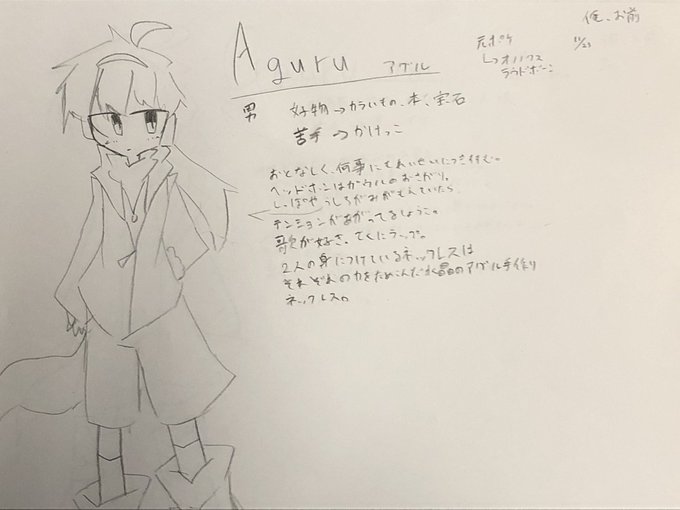 Aguru アグル
俺、お前
元ポケ
↳オノノクス
ラウドボーン
11/23
男 好物→カラいもの、本、宝石
苦手→かけっこ
おとなしく、何事にもれいせいにつき
ヘッドホンはガウルのおさがり。
しっぽやうしろがみがもえていたら
テンションがあがってるしょうこ。
歌が好き。とくにラップ。
2人の身につけているネックレスは
それぞれの力をためこんだ水晶のアグル手作り
ネックレス。